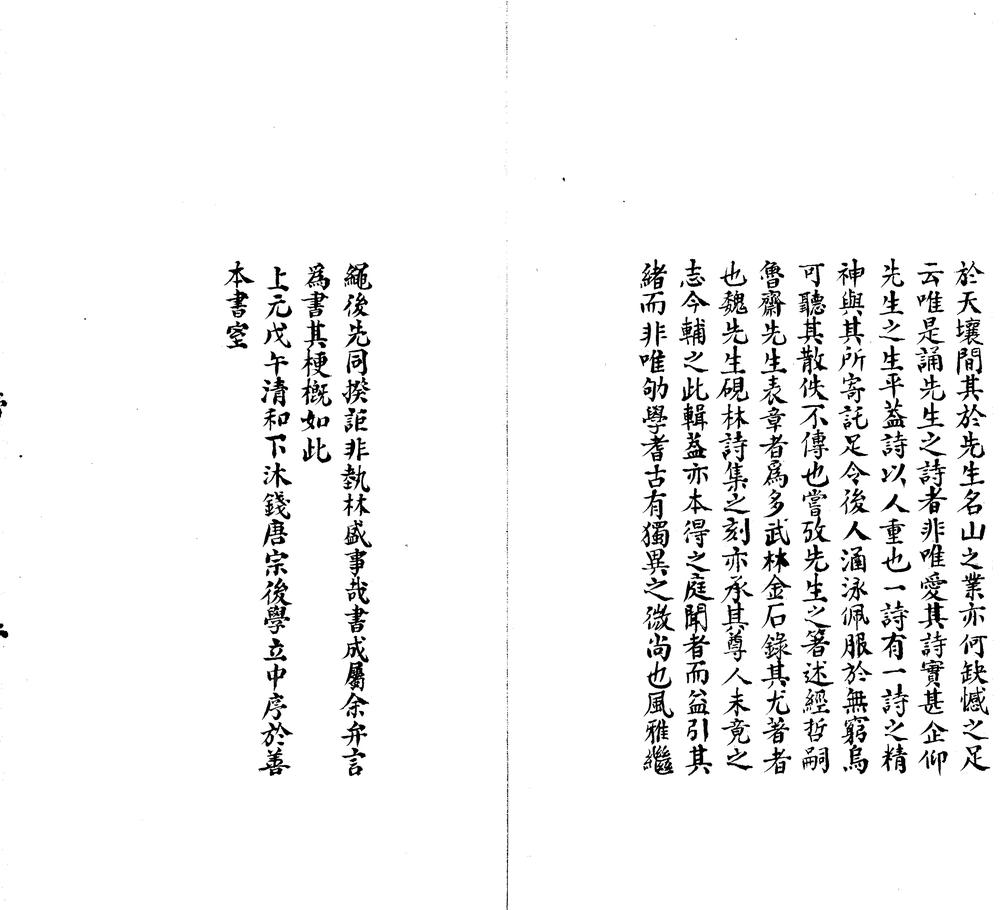 於天壤間其於先生名山之業亦何缺憾之足
云唯是誦先生之詩者非唯愛其詩實甚企仰
先生之生平葢詩以人重也一詩有一詩之精
神與其所寄託足令後人涵泳佩服於無窮烏
可聽其散佚不傳也嘗攷先生之箸述經哲嗣
魯齋先生表章者爲多武林金石錄其尤著者
也魏先生硯林詩集之刻亦承其尊人未竟之
志今輔之此輯葢亦本得之庭聞者而益引其
緒而非唯劬學耆古有獨異之微尚也風雅繼
繩後先同揆詎非執林盛事哉書成屬余弁言
爲書其梗槪如此
上元戊午清和下沐錢唐宗後學立中序於善
本書室